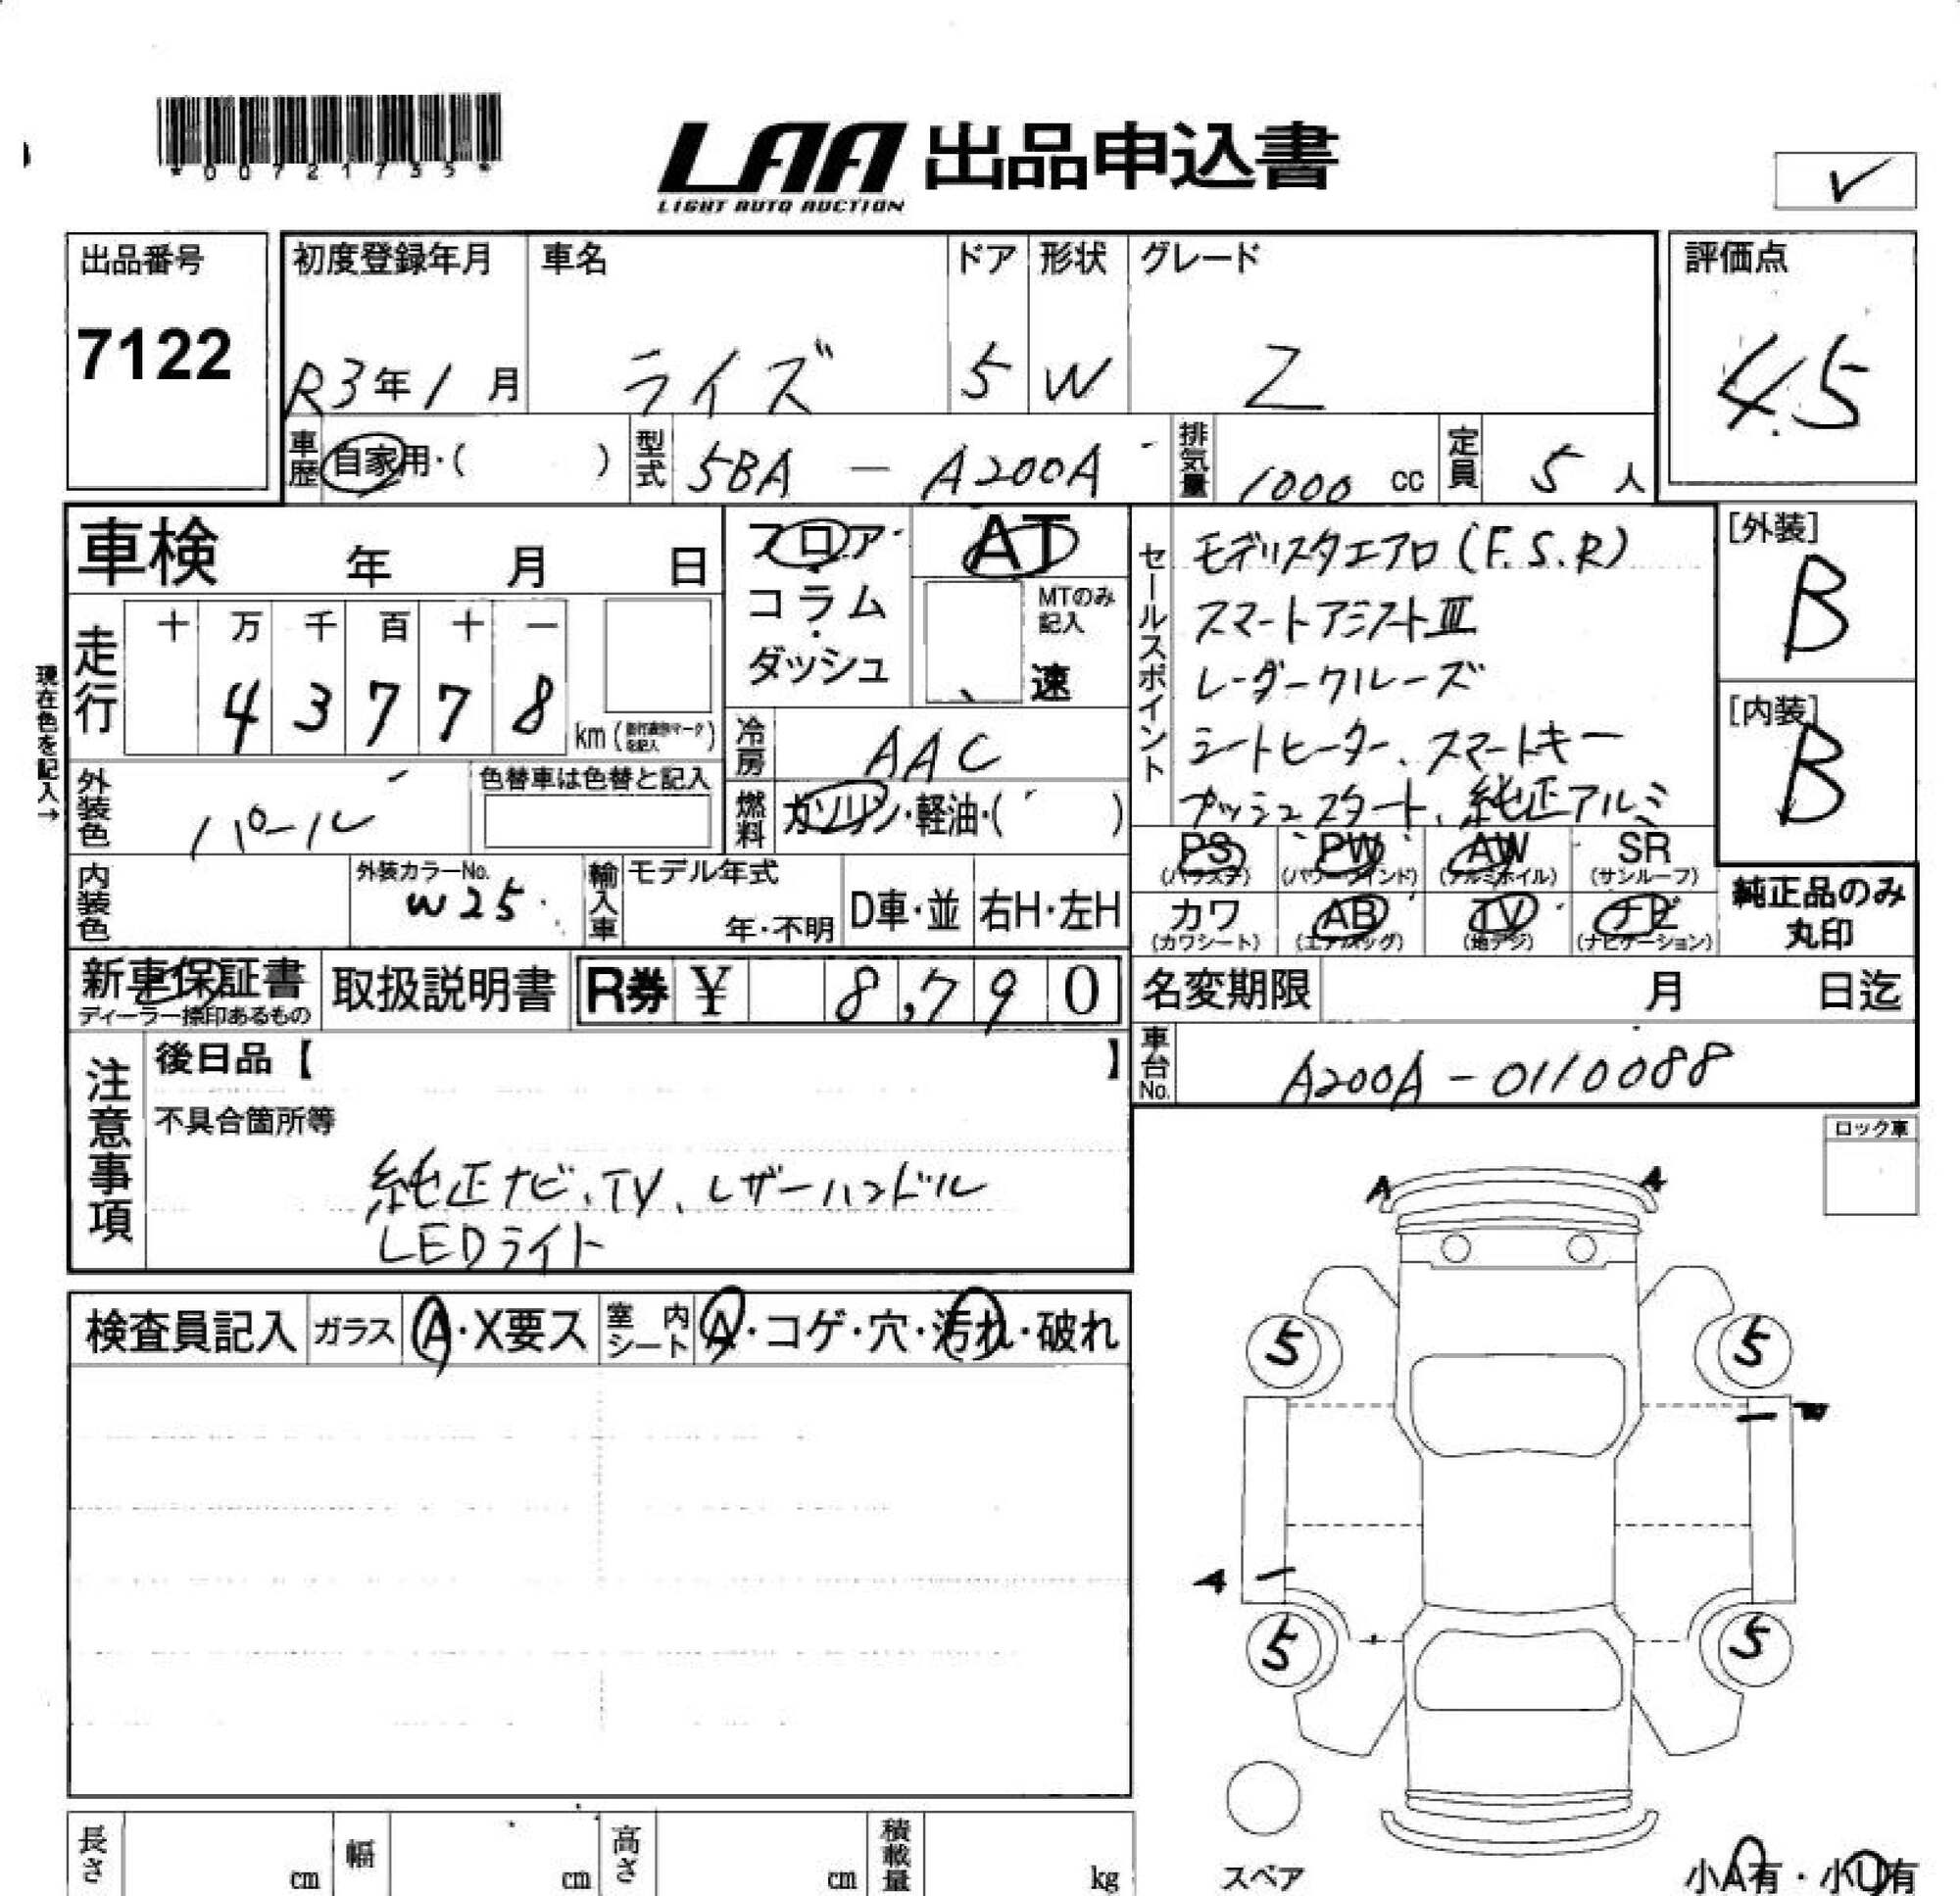 *00721735*
LAA 出品申込書
LIGHT AUTO AUCTION
✓
出品番号 初度登録年月 車名 ドア 形状 グレード 評価点
7122 R3年1月 ライズ 5 W Z 4.5
車歴 自家用・( ) 型式 5BA - A200A 排気量 1000 cc 定員 5 人
車検 年 月 日 フロア・ AT セールスポイント モデリスタエアロ(F.S.R) [外装]
コラム・ MTのみ記入 スマートアシストⅢ B
ダッシュ 速 レーダークルーズ
走行 十 万 千 百 十 一 シートヒーター、スマートキー [内装]
4 3 7 7 8 km( を記入) プッシュスタート、純正アルミ B
現在色を記入→
冷房 AAC
外装色 パール 色替車は色替と記入 燃料 ガソリン・軽油・( )
PS (パワステ) PW (パワーウインド) AW (アルミホイル) SR (サンルーフ)
カワ (カワシート) AB (エアバッグ) TV (地デジ) ナビ (ナビゲーション) 純正品のみ丸印
内装色 外装カラーNo. W25 輸入車 モデル年式 年・不明 D車・並 右H・左H
新車保証書 ディーラー捺印あるもの 取扱説明書 R券 ¥ 8,790 名変期限 月 日迄
車台No. A200A-0110088
注意事項 後日品【 】
不具合箇所等
純正ナビ、TV、レザーハンドル
LEDライト
ロック車
A A
検査員記入 ガラス A・X要ス 室内シート A・コゲ・穴・汚れ・破れ
5 5
A
5 5
スペア
長さ cm 幅 cm 高さ cm 積載量 kg
小A有・小U有